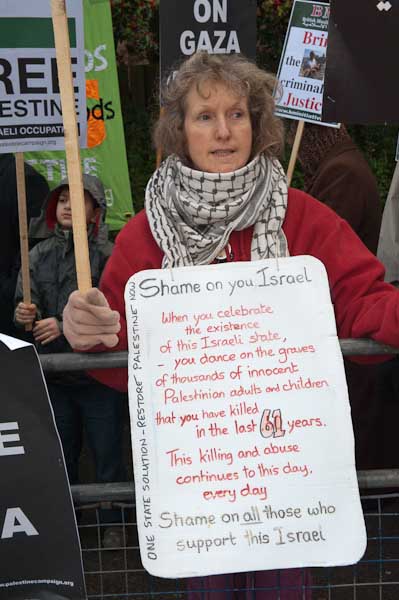 ON
GAZA
REE
ALESTINE
AELI OCCUPATION
palestinecampaign.org
Bri
the
criminal
Justice
Shame on you Israel
When you celebrate
the existence
of this Israeli state,
- you dance on the graves
of thousands of innocent
Palestinian adults and children
that you have killed
in the last 61 years.
This killing and abuse
continues to this day,
every day
Shame on all those who
support this Israel
ONE STATE SOLUTION - RESTORE PALESTINE NOW
E
A
www.palestinecampaign.org